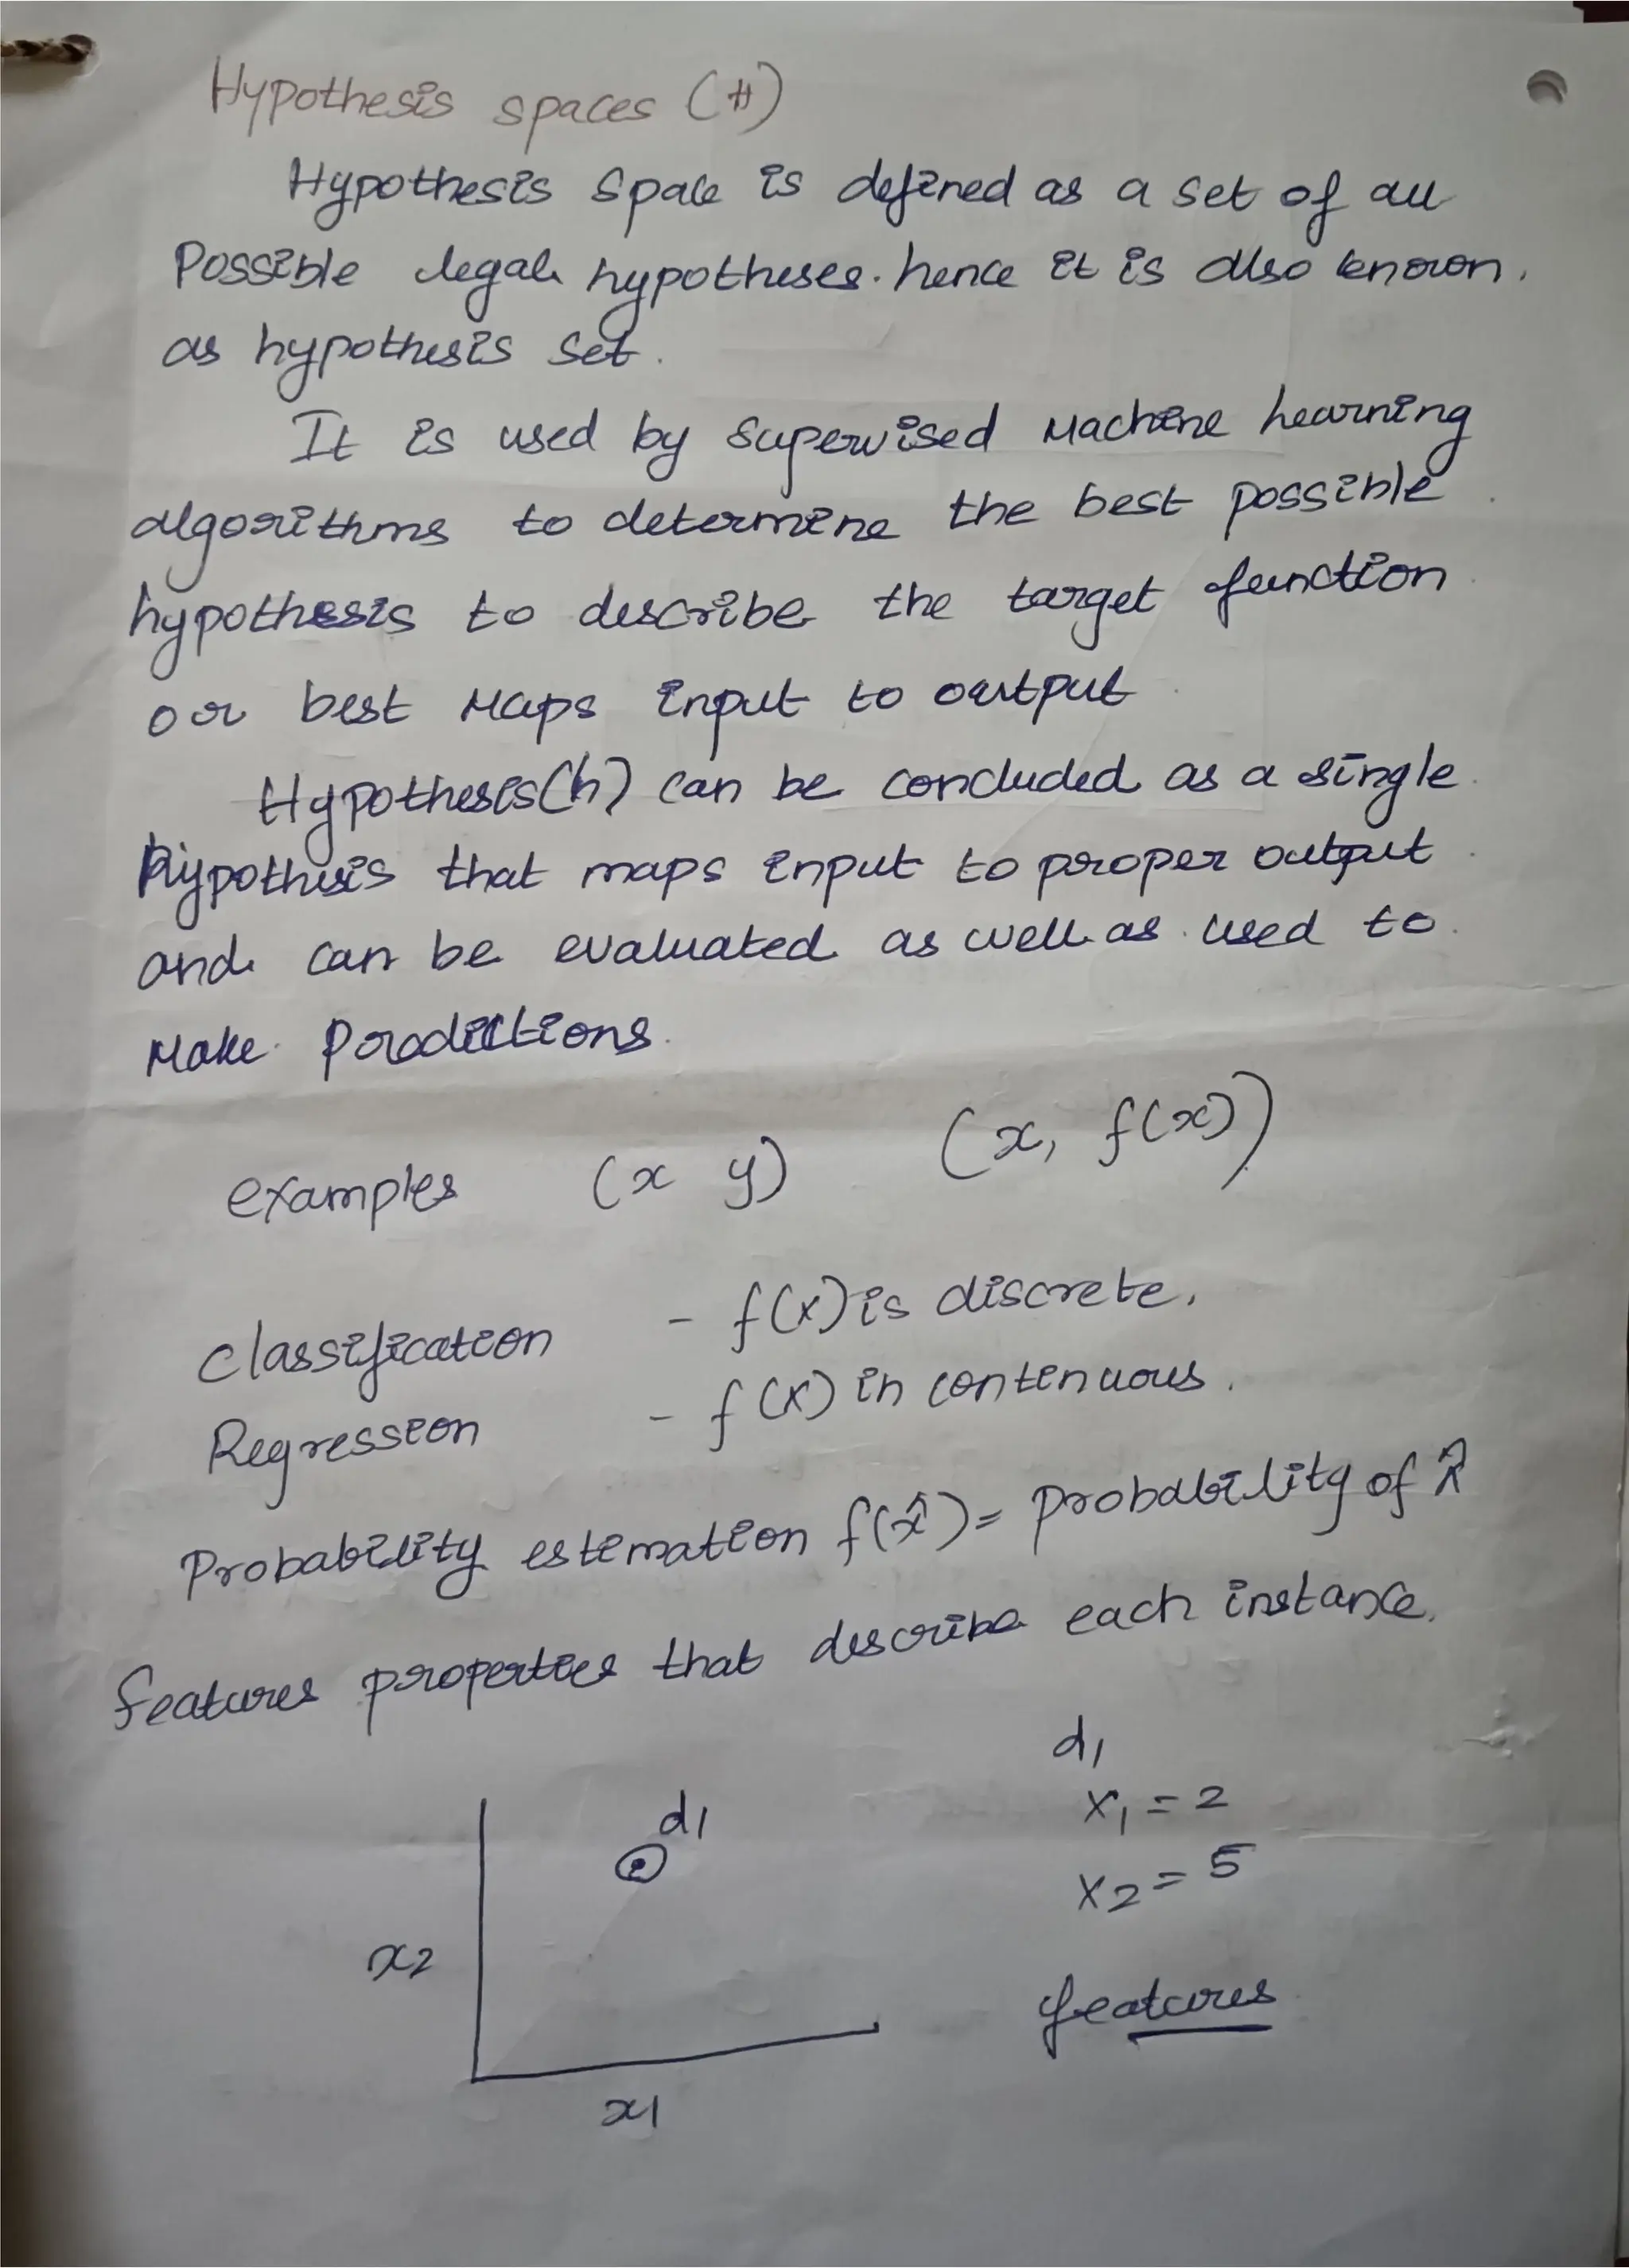 Hypothesis spaces (H)
Hypothesis Space is defined as a set of all
Possible legal hypotheses. hence it is also known.
as hypothesis set.
It is used by supervised Machine Learning
algorithms to determine the best possible
hypothesis to describe the target function
or best Maps input to output
Hypothesis(h) can be concluded as a single
hypothesis that maps input to proper output
and can be evaluated as well as used to
Make Prodictions.
examples (x y) (x, f(x))
classification - f(x) is discrete.
Regression - f(x) in continuous.
Probability estimation f(x̂) = Probability of x̂
features properties that describe each instance.
d1
x1 = 2
x2 = 5
d1
x2
features
x1